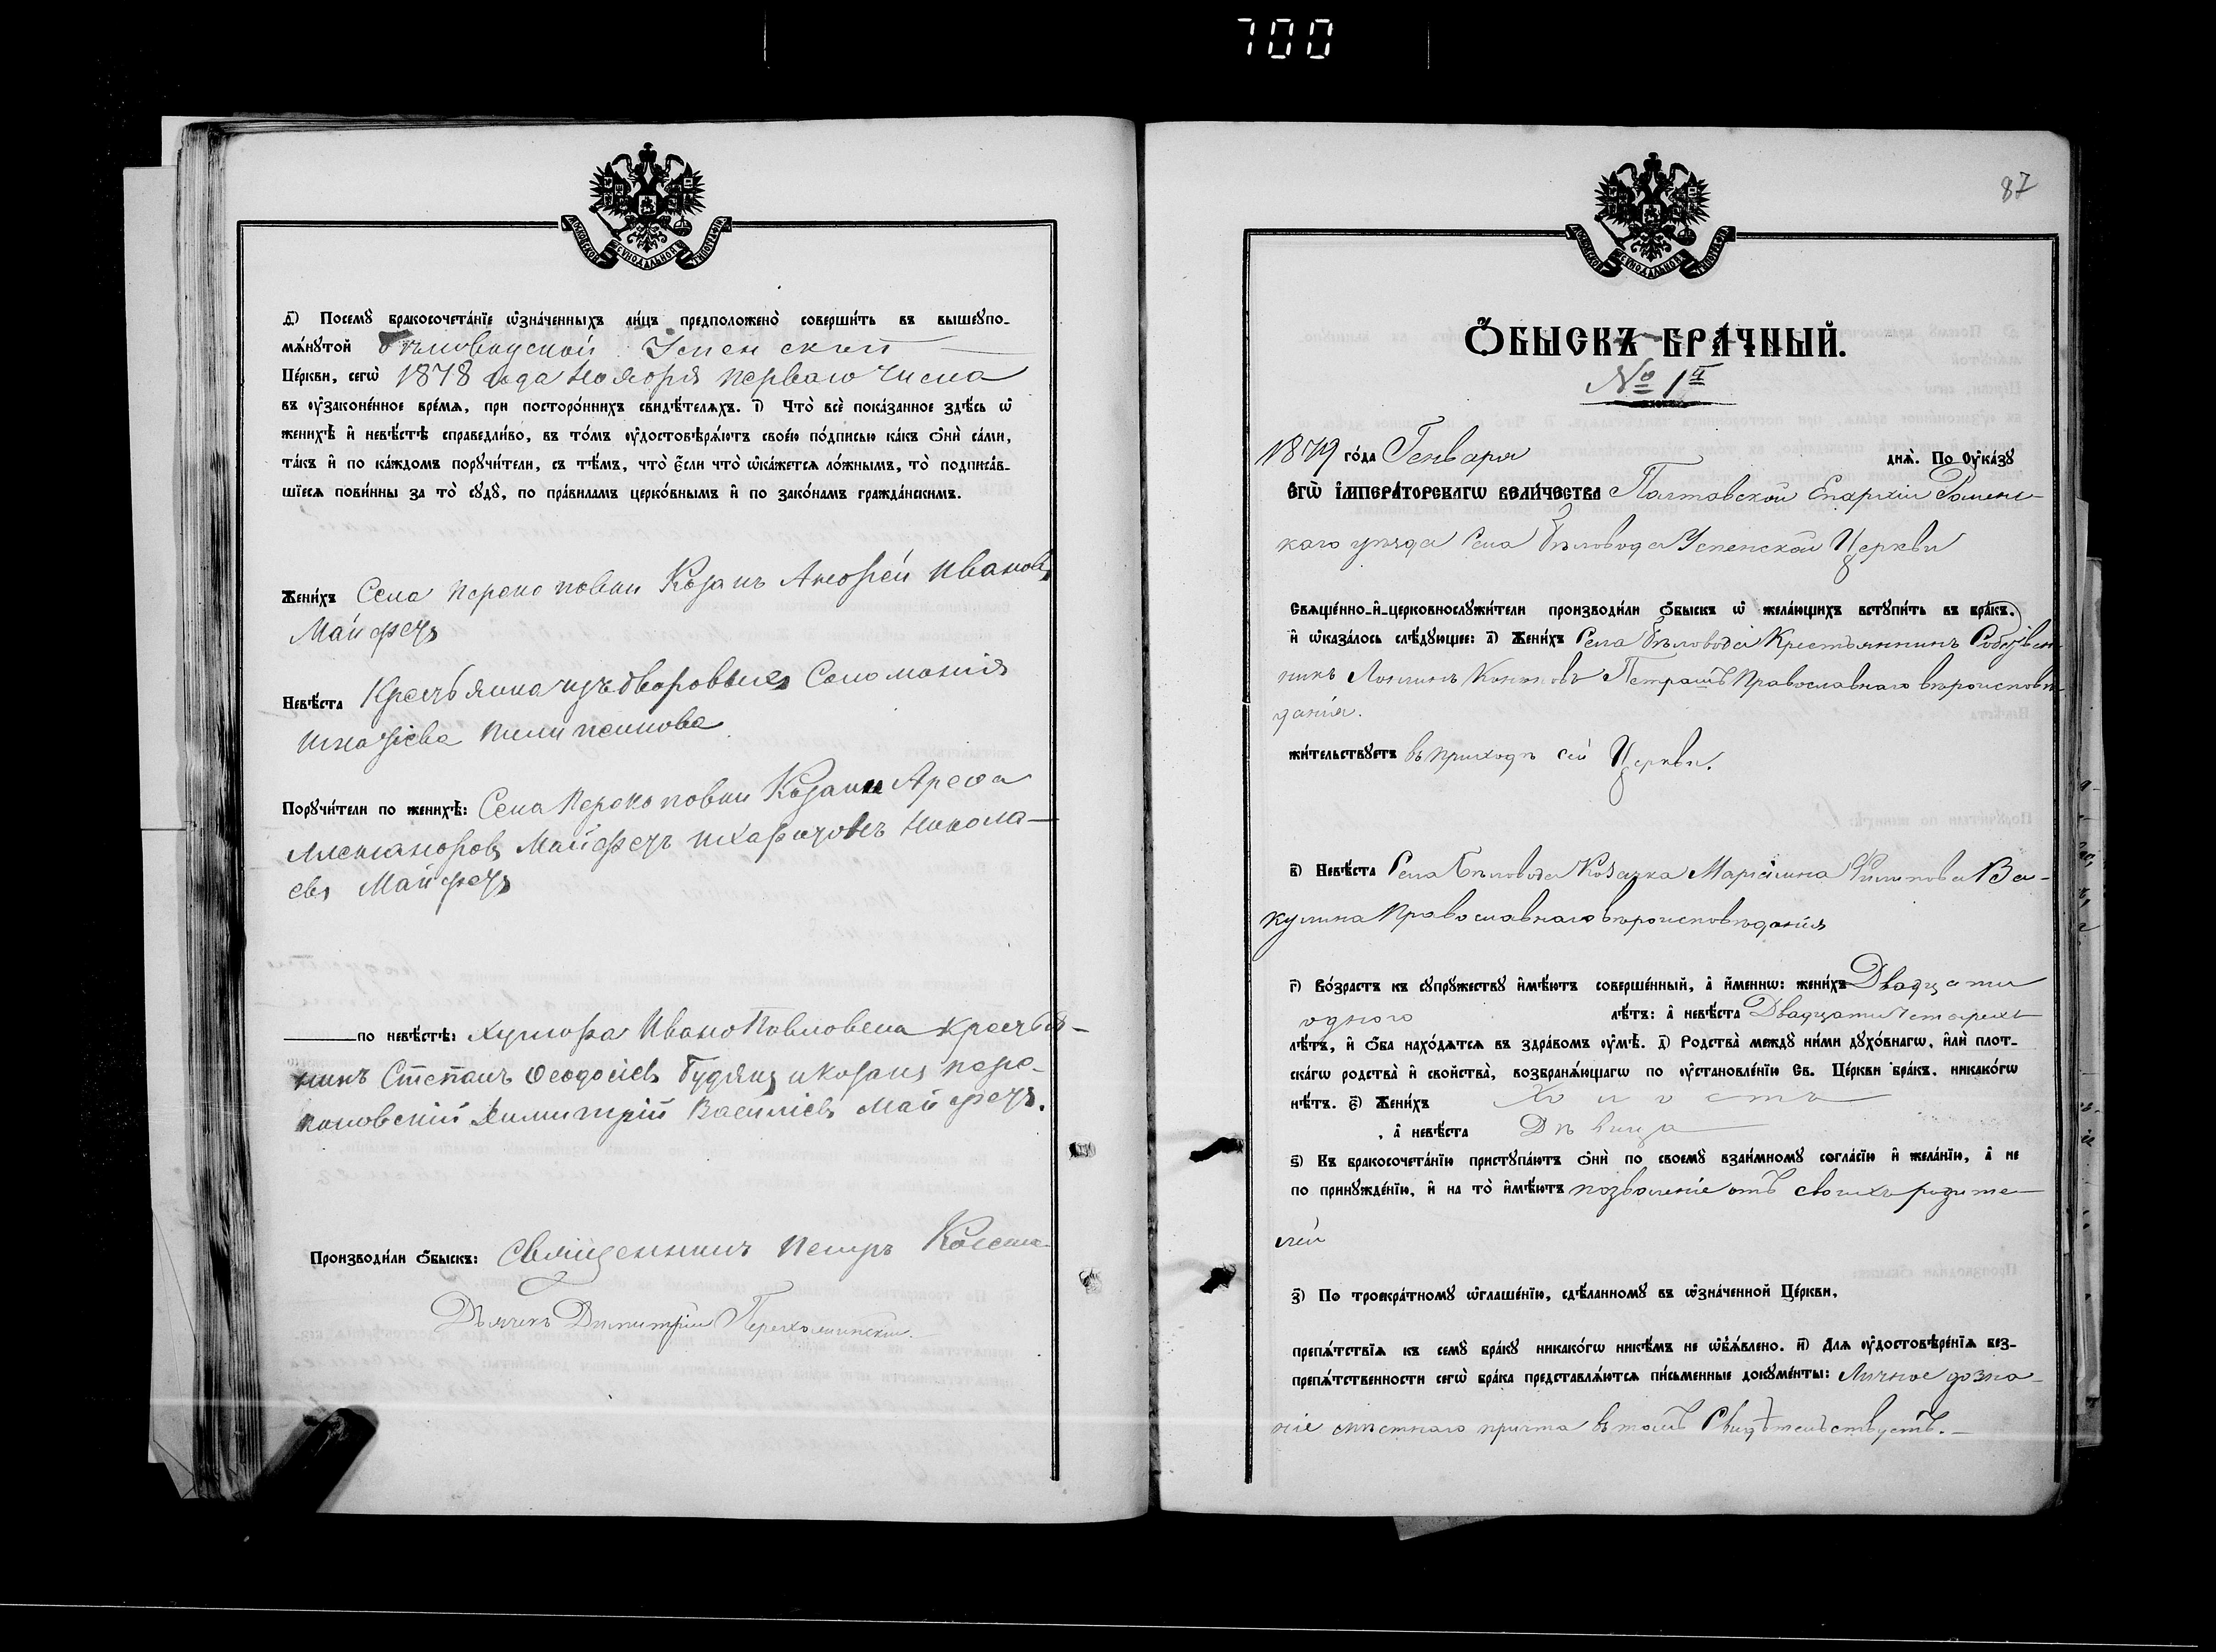 700
МОСКОВСКОЙ СѴНОДАЛЬНОЙ ТИПОГРАФІИ
д҃і) Посемꙋ̀ бракосочета́нїе ѡ҆зна́ченныхъ ли́цъ предположено̀ соверши́ть въ вышеꙋпо-
мѧ́нꙋтой Бѣловодской Успенской
Це́ркви, сегѡ̀ 1878 года Ноября перваго числа
въ ᲂу҆законе́нное вре́мѧ, при посторо́ннихъ свидѣ́телѧхъ. і҃) Что̀ всѐ пока́занное здѣ́сь ѡ҆
женихѣ̀ и҆ невѣ́стѣ справедли́во, въ то́мъ ᲂу҆достовѣрѧ́ютъ свое́ю по́дписью ка́къ ѻ҆нѝ са́ми,
та́къ и҆ по ка́ждомъ порꙋчи́тели, съ тѣ́мъ, что̀ є҆́сли что̀ ѡ҆ка́жетсѧ ло́жнымъ, то̀ подписа́в-
шїесѧ пови́нны за то̀ сꙋдꙋ̀, по пра́виламъ церко́внымъ и҆ по зако́намъ гражда́нскимъ.
Жени́хъ Села Перекоповки Козакъ Андрей Ивановъ
Майфетъ
Невѣ́ста Крестьянка изъ дворовыхъ Соломонія
Игнатіева
Порꙋчи́тели по женихѣ̀: Села Перекоповки Козаки Арефа
Александровъ Майфетъ и Никола-
евъ Майфетъ
по невѣ́стѣ: Хутора Крестья-
нинъ Степанъ Феодосіевъ и козакъ пере-
коповскій Димитрій Василіевъ Майфетъ.
Производи́ли ѻ҆́быскъ: Священникъ Петръ
Дьячекъ Димитрій
87
МОСКОВСКОЙ СѴНОДАЛЬНОЙ ТИПОГРАФІИ
Ѻ҆́БЫСКЪ БРА́ЧНЫЙ.
№ 1й
1879 го́да Генваря днѧ̀. По ᲂу҆ка́зꙋ
Є҆ГѠ̀ І҆МПЕРА́ТОРСКАГѠ ВЕЛИ́ЧЕСТВА Полтавской Епархіи Ромен-
каго уезда Села Бѣловода Успенской Церкви
Свѧще́нно-и҆-церковнослꙋжи́тели производи́ли ѻ҆́быскъ ѡ҆ жела́ющихъ встꙋпи́ть въ бра́къ.
и҆ ѡ҆каза́лось слѣ́дꙋющее: а҃) Жени́хъ Села Бѣловода Крестьянинъ Собствен
никъ Кононовъ Петрашъ Православнаго вѣроисповѣ-
данія.
жи́тельствꙋетъ въ приходѣ сей Церкви.
в҃) Невѣ́ста Села Бѣловода Козачка Маріамна Филипова Ва-
кулина Православнаго вѣроисповѣданія
г҃) Во́зрастъ къ сꙋпрꙋ́жествꙋ и҆мѣ́ютъ соверше́нный, а҆ и҆́меннѡ: жени́хъ Двадцати
одного лѣ́тъ: а҆ невѣ́ста Двадцати четырехъ
лѣ́тъ, и҆ ѻ҆́ба нахо́дѧтсѧ въ здра́вомъ ᲂу҆мѣ̀. д҃) Родства̀ междꙋ̀ ни́ми дꙋхо́внагѡ, и҆лѝ плот-
ска́гѡ родства̀ и҆ сво́йства̀, возбранѧ́ющагѡ по ᲂу҆становле́нїю Св. Це́ркви бра́къ, никако́гѡ
нѣ́тъ. є҃) Жени́хъ Холостъ
, а҆ невѣ́ста Дѣвица
ѕ҃) Къ бракосочета́нїю пристꙋпа́ютъ ѻ҆нѝ по своемꙋ̀ взаи́мномꙋ согла́сїю и҆ жела́нїю, а҆ не
по принꙋжде́нїю, и҆ на то̀ и҆мѣ́ютъ позволеніе отъ своихъ родите
лей
з҃) По троекра́тномꙋ ѡ҆глаше́нїю, сдѣ́ланномꙋ въ ѡ҆зна́ченной Це́ркви,
препѧ́тствїѧ къ семꙋ̀ бра́кꙋ никако́гѡ никѣ́мъ не ѡ҆б̾ѧ́влено. и҃) Длѧ ᲂу҆достовѣре́нїѧ без-
препѧ́тственности сегѡ̀ бра́ка представлѧ́ютсѧ пи́сьменные докꙋме́нты: Личное дозна-
ніе мѣстнаго причта въ томъ Свидѣтельствуетъ.